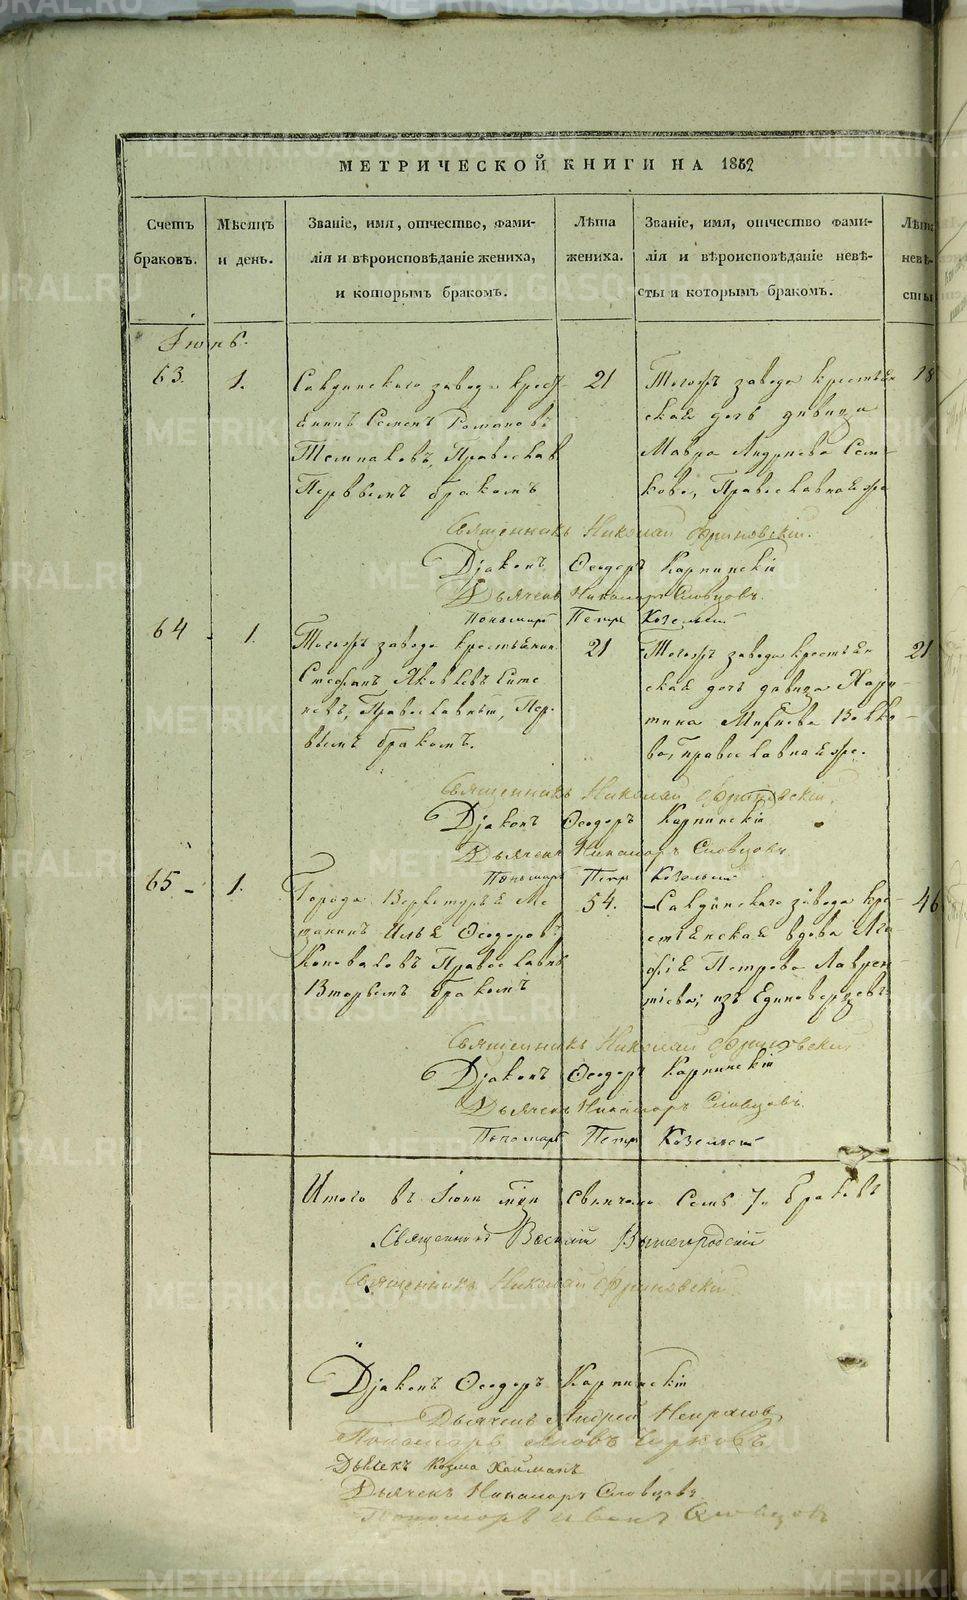 МЕТРИЧЕСКОЙ КНИГИ НА 1852
Счетъ браковъ.
Мѣсяцъ и день.
Званіе, имя, отчество, фами-
лія и вѣроисповѣданіе жениха,
и которымъ бракомъ.
Лѣта жениха.
Званіе, имя, отчество фами-
лія и вѣроисповѣданіе невѣ-
сты и которымъ бракомъ.
Лѣта невѣ-
сты
63.
1.
Салдинскаго завода крестья
янинъ Семенъ Романовъ
Православ
Первымъ бракомъ
21
Тогожъ завода крестьян
ская дочь дѣвица
Мавра Андреева
Православная
18
Священникъ Николай Флоровскій.
Діаконъ Ѳеодоръ Карпинскій
Дьячекъ Никаноръ Словцовъ.
Пономарь Петръ Козельскій
64
1.
Тогожъ завода крестьянин
Стефанъ Яковлевъ Сите
невъ, Православный, Пер
вымъ бракомъ.
21
Тогожъ завода крестьян
ская дочь дѣвица Хари
тина Волко
ва, православная
21
Священникъ Николай
Діаконъ Ѳеодоръ Карпинскій
Дьячекъ Никаноръ Словцовъ
Пономарь Петръ Козельскій
65
1.
Города Верхотурья Мѣ
щанинъ Илья Ѳеодоровъ
Коноваловъ Православн
Вторымъ бракомъ
54.
Салдинскаго завода кре
стьянская вдова Ага
фія Петрова Лаврен
тіева, изъ Единоверцевъ
46
Священникъ Николай
Діаконъ Ѳеодоръ Карпинскій
Дьячекъ Никаноръ Словцовъ.
Пономарь Петръ Козельскій
Итого въ Свѣнчано Семь 7. Браковъ
Священникъ Василій Вышегородскій
Священникъ Николай
Діаконъ Ѳеодоръ Карпинскій
Дьячекъ Андрей Некрасов
Пономарь Яковъ Чурковъ
Дьячекъ Козма
Дьячекъ Никаноръ Словцовъ
Пономарь Иванъ Словцовъ
METRIKI.GASO-URAL.RU